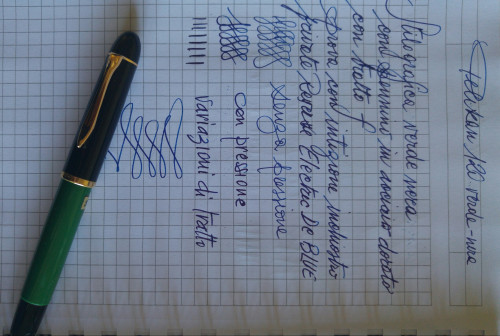 Pelikan 120 verde-nera
Stilografica verde nera
con pennino in acciaio dorato
con tratto F
Prova con intinzione inchiostro
Private Reserve Electric DC BLUE
senza pressione
con pressione
variazioni di tratto